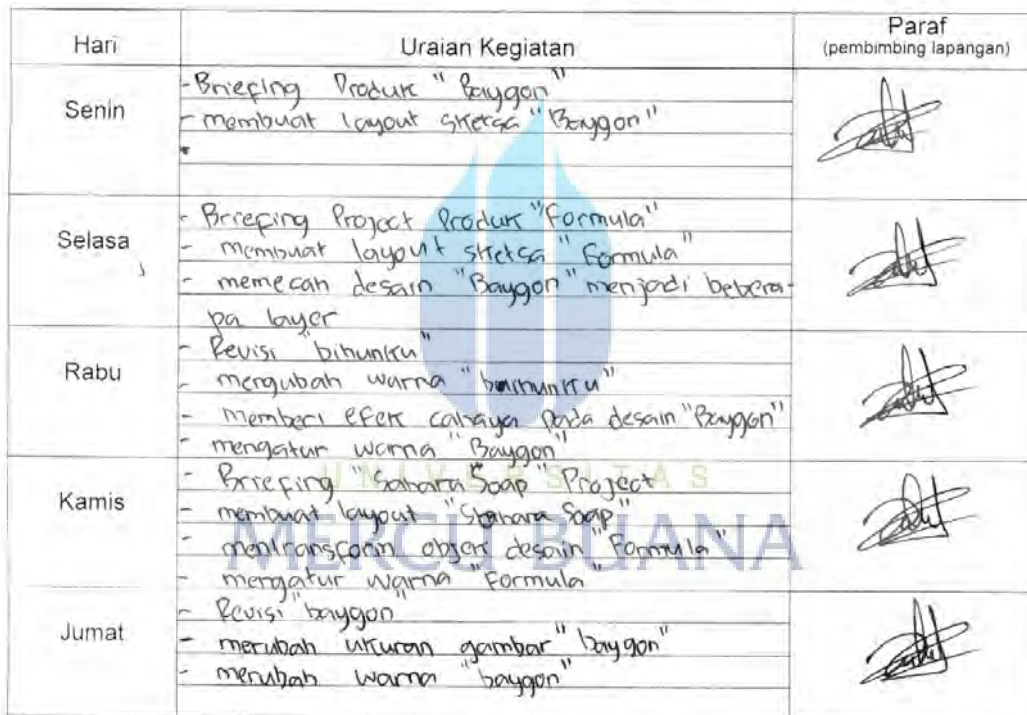 Hari Uraian Kegiatan Paraf
(pembimbing lapangan)
Senin
- Briefing Produk "Baygon"
- membuat layout sketsa "Baygon"
Selasa
- Briefing Project Produk "Formula"
- membuat layout sketsa "Formula"
- memecah desain "Baygon" menjadi bebera-
pa layer
Rabu
- Revisi "bihunku"
- mengubah warna "bihunku"
- memberi efek cahaya pada desain "Baygon"
- mengatur warna "Baygon"
UNIVERSITAS
MERCU BUANA
Kamis
- Briefing "Sahara Soap" Project
- membuat layout "Sahara Soap"
- mentransform objek desain "Formula"
- mengatur warna "Formula"
Jumat
- Revisi "baygon"
- merubah ukuran gambar "baygon"
- merubah warna "baygon"